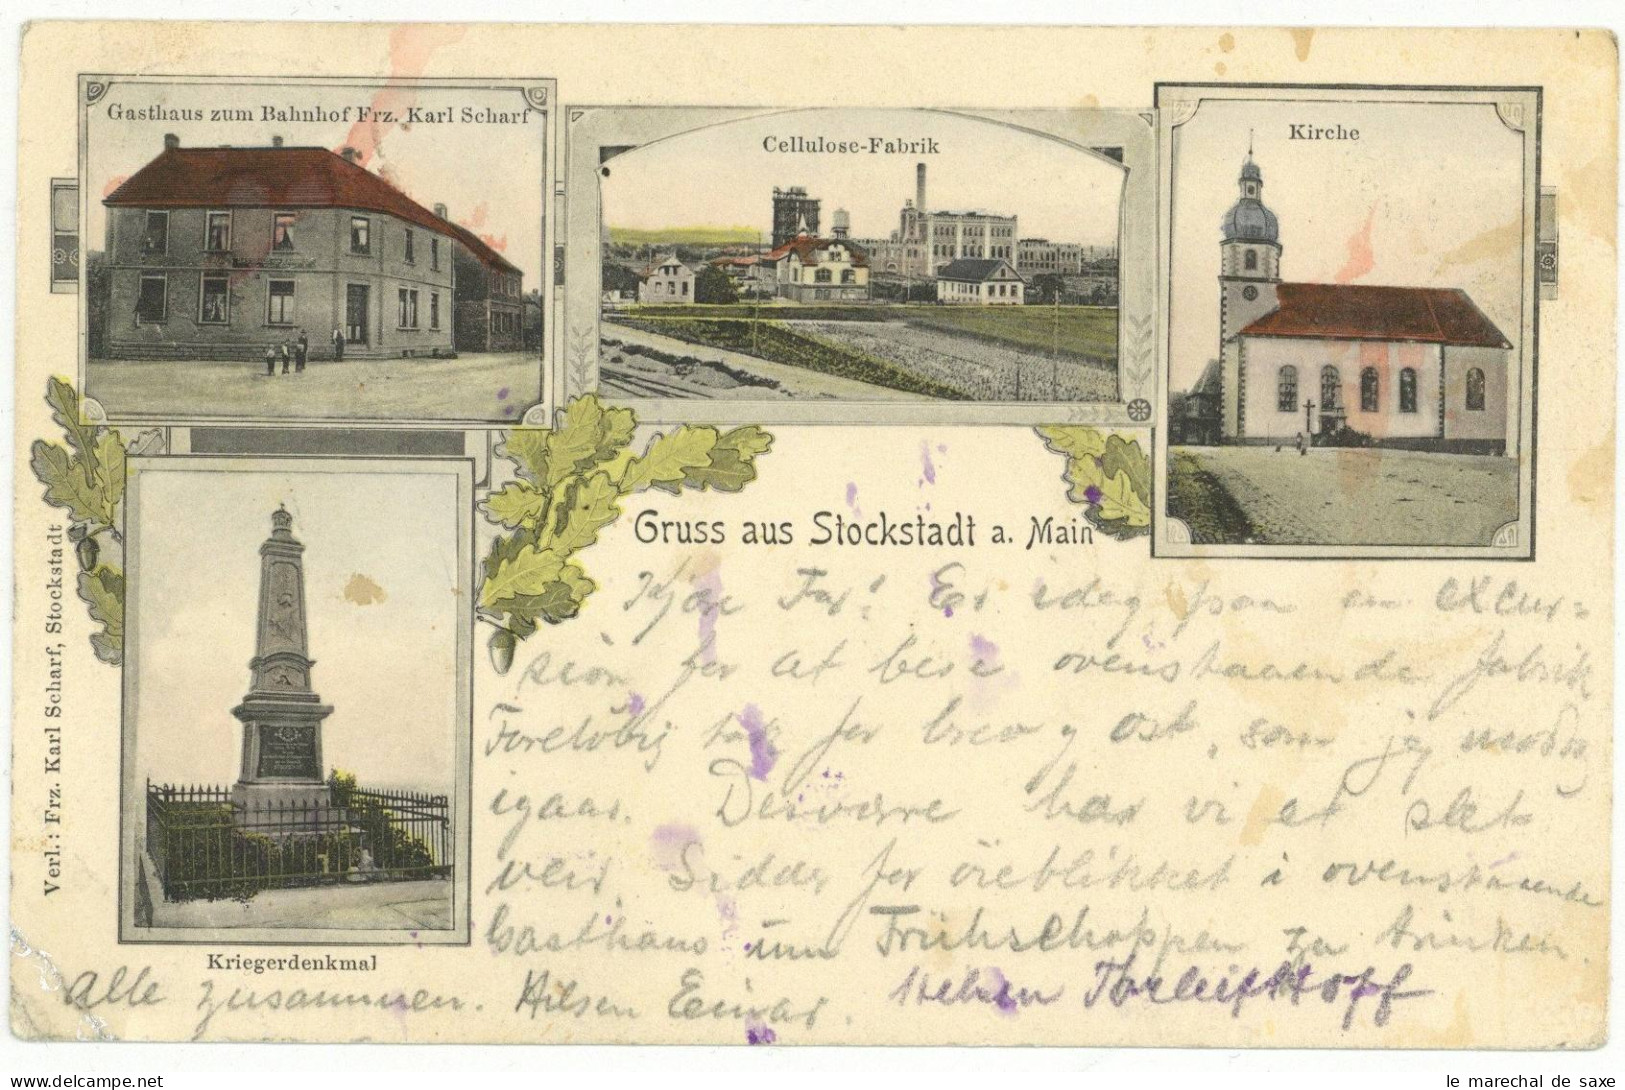 Gasthaus zum Bahnhof Frz. Karl Scharf
Cellulose-Fabrik
Kirche
Kriegerdenkmal
Verl.: Frz. Karl Scharf, Stockstadt
Gruss aus Stockstadt a. Main
Kjære Far! Er idag paa en excur=
sion for at bese ovenstaaende fabrik
Foreløbig tak for brev og ost, som jeg modtog
igaar. Desværre har vi et slet
veir. Sidder for øieblikket i ovenstaaende
Gasthaus um Frühschoppen zu trinken.
Alle zusammen. Hilsen Einar. Hilsen Thorleif Hoff
le marechal de saxe